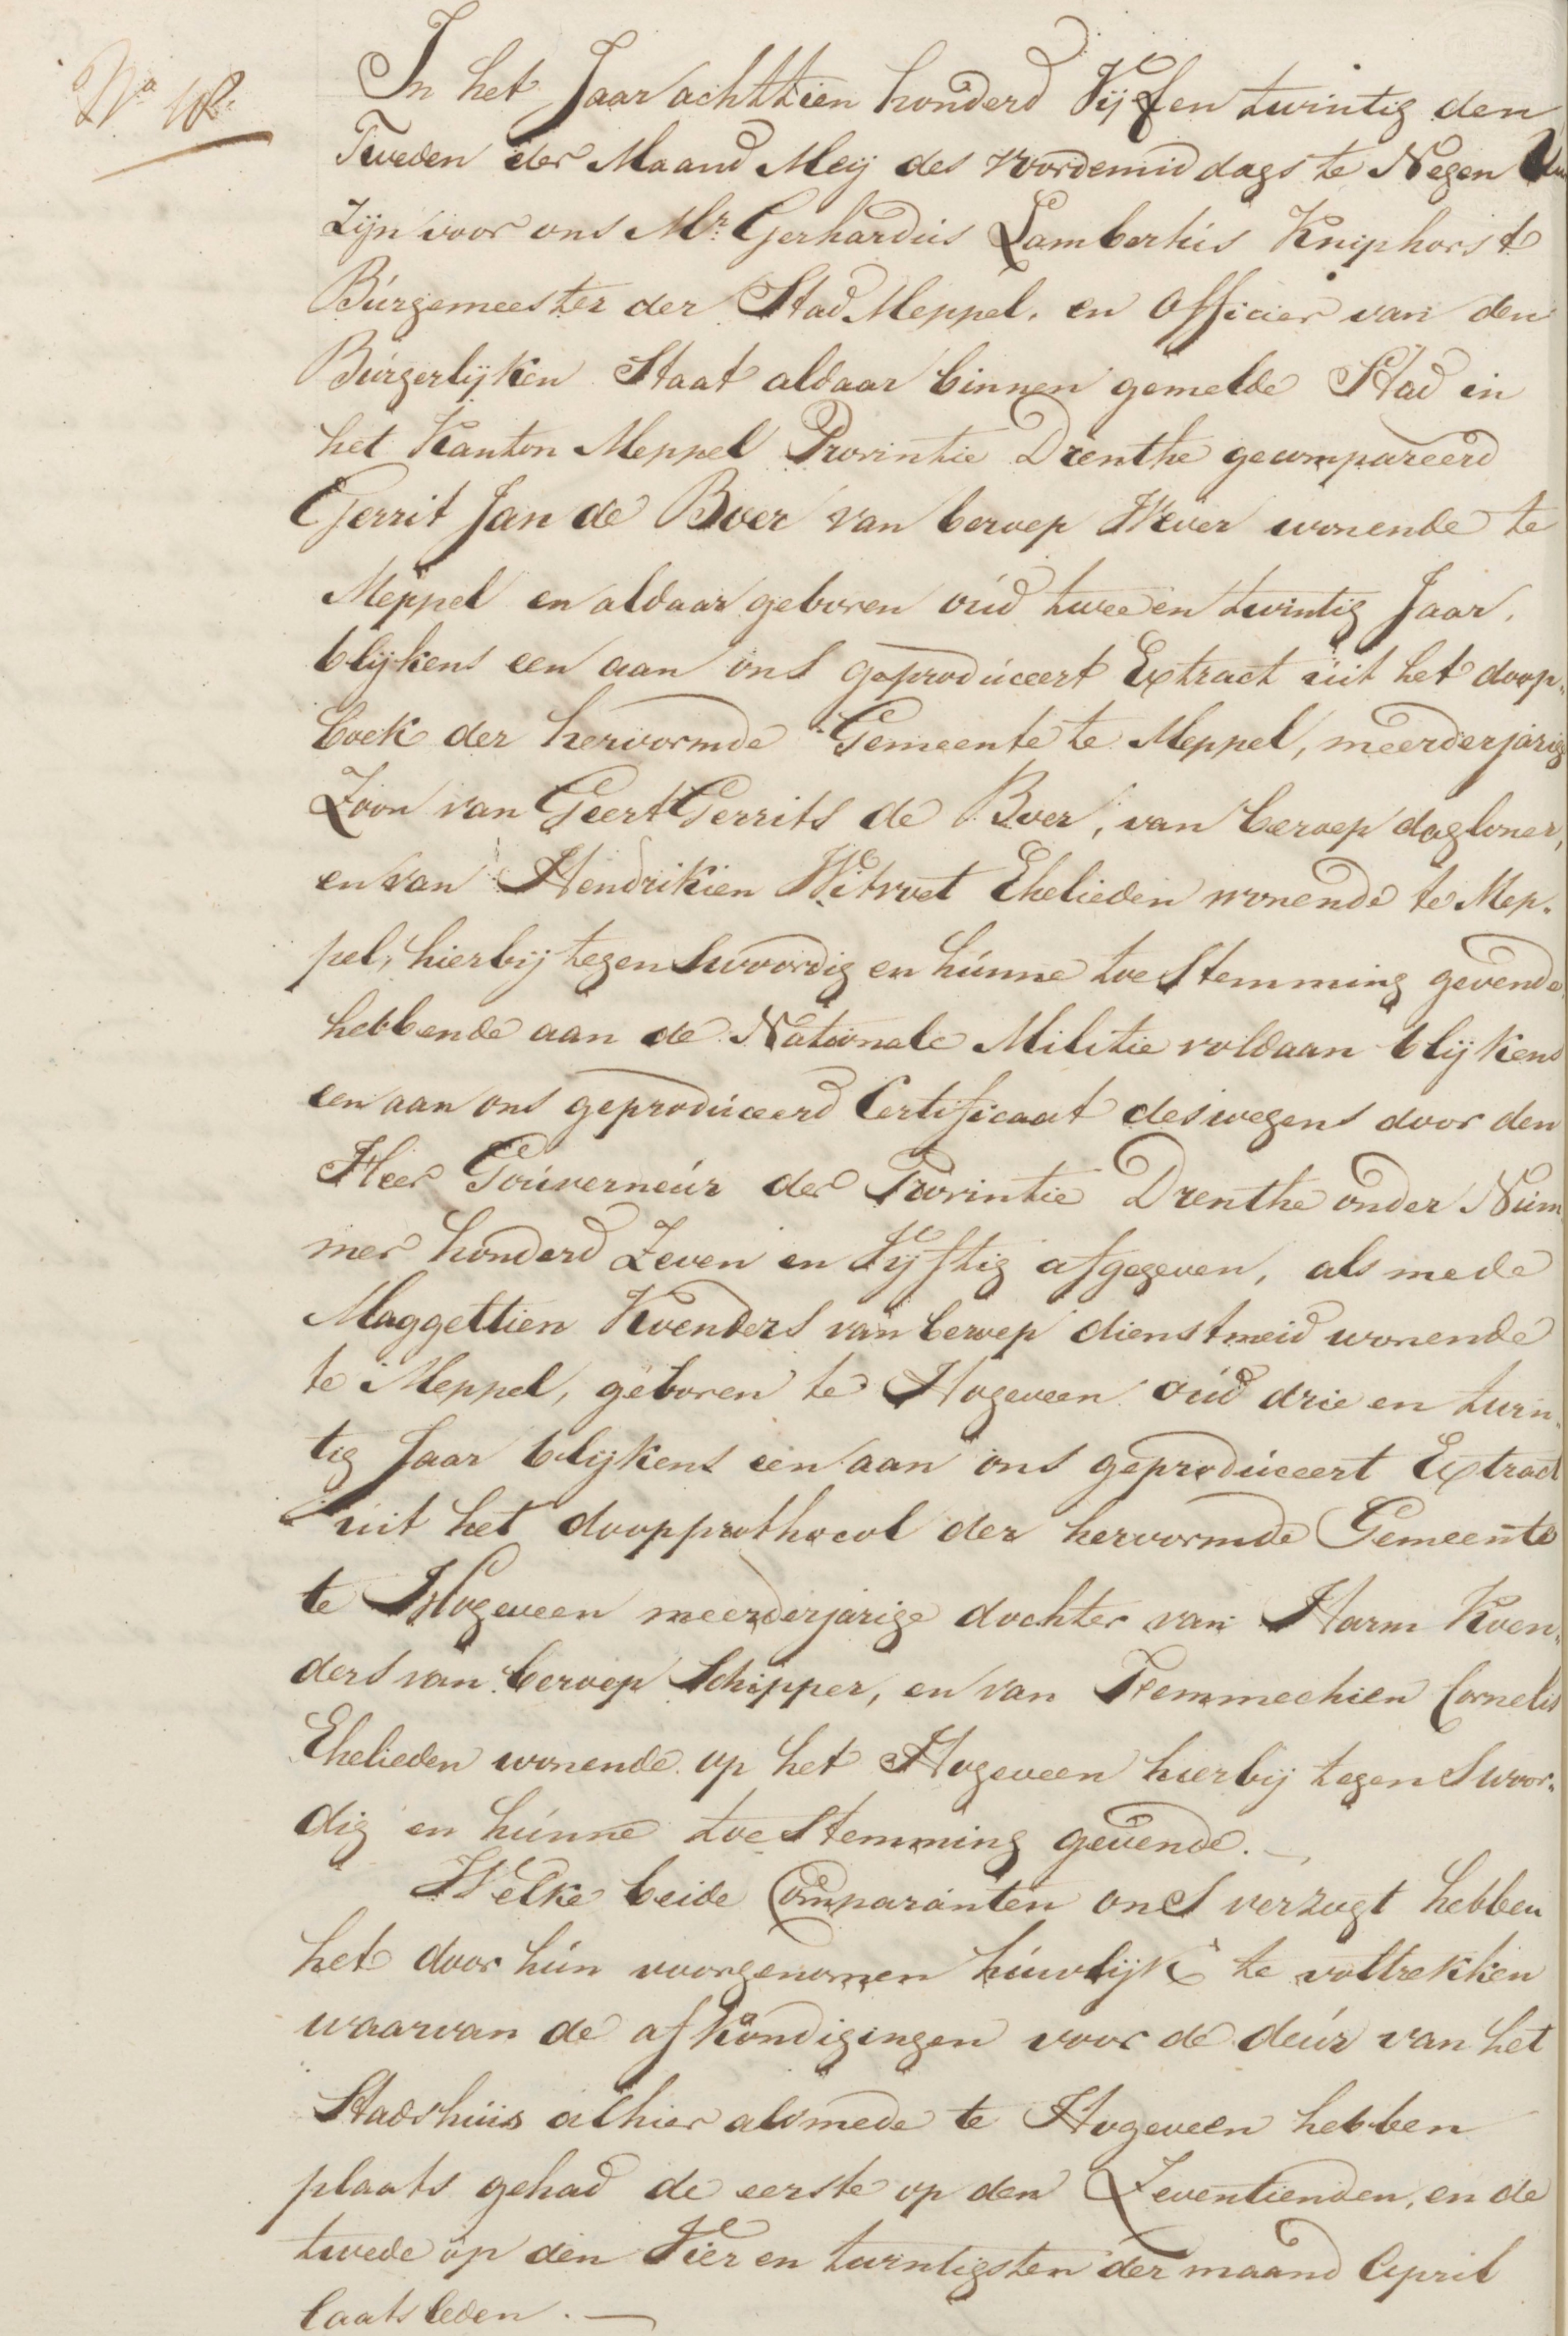 No 18.
In het Jaar achttien honderd Vijf en twintig den
Tweden der Maand Meij des voordemiddags te Negen Uur
Zijn voor ons Mr. Gerhardus Lambertus Kniphorst
Burgemeester der Stad Meppel, en Officier van den
Burgerlijken Staat aldaar binnen gemelde Stad in
het Kanton Meppel Provintie Drenthe gecompareerd
Gerrit Jan de Boer van beroep Wever wonende te
Meppel en aldaar geboren oud twee en twintig Jaar,
blijkens een aan ons geproduceert Extract uit het doop-
boek der hervormde Gemeente te Meppel, meerderjarig
Zoon van Geert Gerrits de Boer, van beroep dagloner,
en van Hendrikien Witvoet Ehelieden wonende te Mep-
pel, hierbij tegenswoordig en hunne toestemming gevende
hebbende aan de Nationale Militie voldaan blijkens
een aan ons geproduceerd Certificaat deswegens door den
Heer Gouverneur der Provintie Drenthe onder Num
mer honderd Zeven en Vijftig afgegeven, als mede
Maggettien Koenders van beroep dienstmeid wonende
te Meppel, geboren te Hogeveen oud drie en twin-
tig Jaar blijkens een aan ons geproduceert Extract
uit het doopprothocol der hervormde Gemeente
te Hogeveen meerderjarige dochter van Harm Koen-
ders van beroep Schipper, en van Femmechien Cornelis
Ehelieden wonende op het Hogeveen hierbij tegenswoor-
dig en hunne toestemming gevende. —
Welke beide Comparanten ons verzogt hebben
het door hun voorgenomen huwlijk te voltrekken
waarvan de afkondigingen voor de deur van het
Stadshuis alhier alsmede te Hogeveen hebben
plaats gehad de eerste op den Zeventienden, en de
twede op den Vier en twintigsten der maand April
laatsleden. —